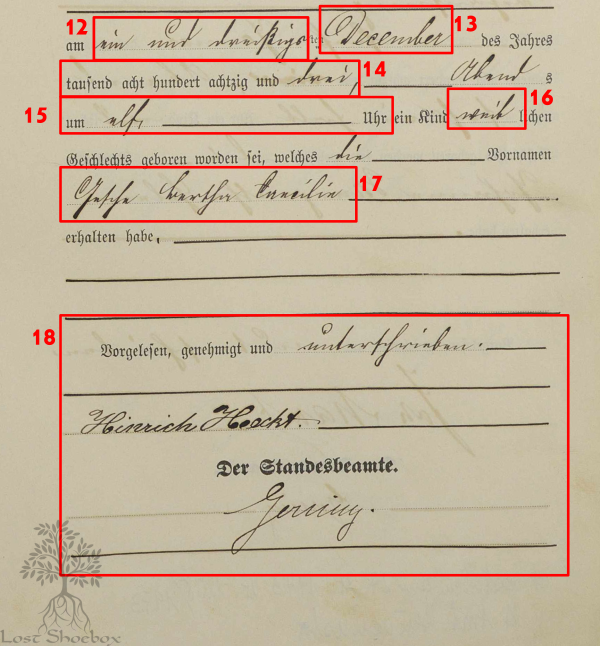 12 13
am ein und dreißigsten December des Jahres
14
tausend acht hundert achtzig und drei, Abend s
15 16
um elf, Uhr ein Kind weib lichen
Geschlechts geboren worden sei, welches die Vornamen
17
Gesche Bertha Caecilie
erhalten habe,
18
Vorgelesen, genehmigt und unterschrieben.
Hinrich Hoeckt.
Der Standesbeamte.
Lost Shoebox